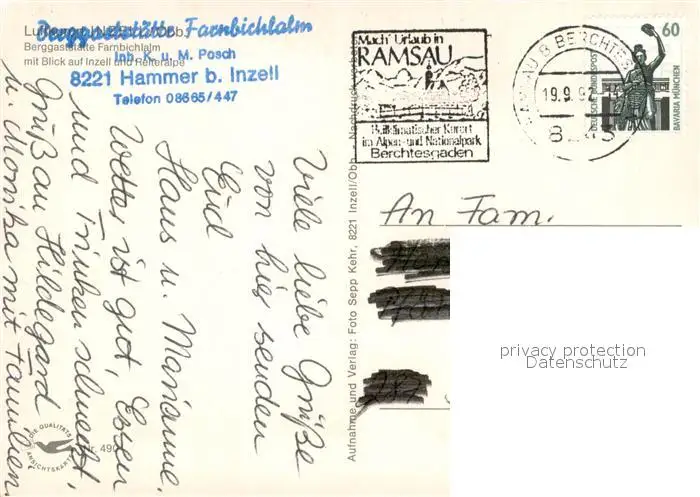 Luftkurort Inzell / Obb.
Berggaststätte Farnbichlalm
mit Blick auf Inzell und Reiteralpe
Berggaststätte Farnbichlalm
Inh. K. u. M. Posch
8221 Hammer b. Inzell
Telefon 08665/447
Viele liebe Grüße
von hier senden
Euch
Hans u. Marianne.
Wetter ist gut, Essen
und Trinken schmeckt,
Gruß an Hildegard
u. Monika mit Familien.
DIE QUALITÄTS
ANSICHTSKARTE
Nr. 490
Aufnahme und Verlag: Foto Sepp Kehr, 8221 Inzell/Obb. - Nachdruck verboten
Mach' Urlaub in
RAMSAU
Heilklimatischer Kurort
im Alpen- und Nationalpark
Berchtesgaden
RAMSAU B BERCHTESG
19.9.92
60
DEUTSCHE BUNDESPOST
BAVARIA MÜNCHEN
An Fam.
privacy protection
Datenschutz